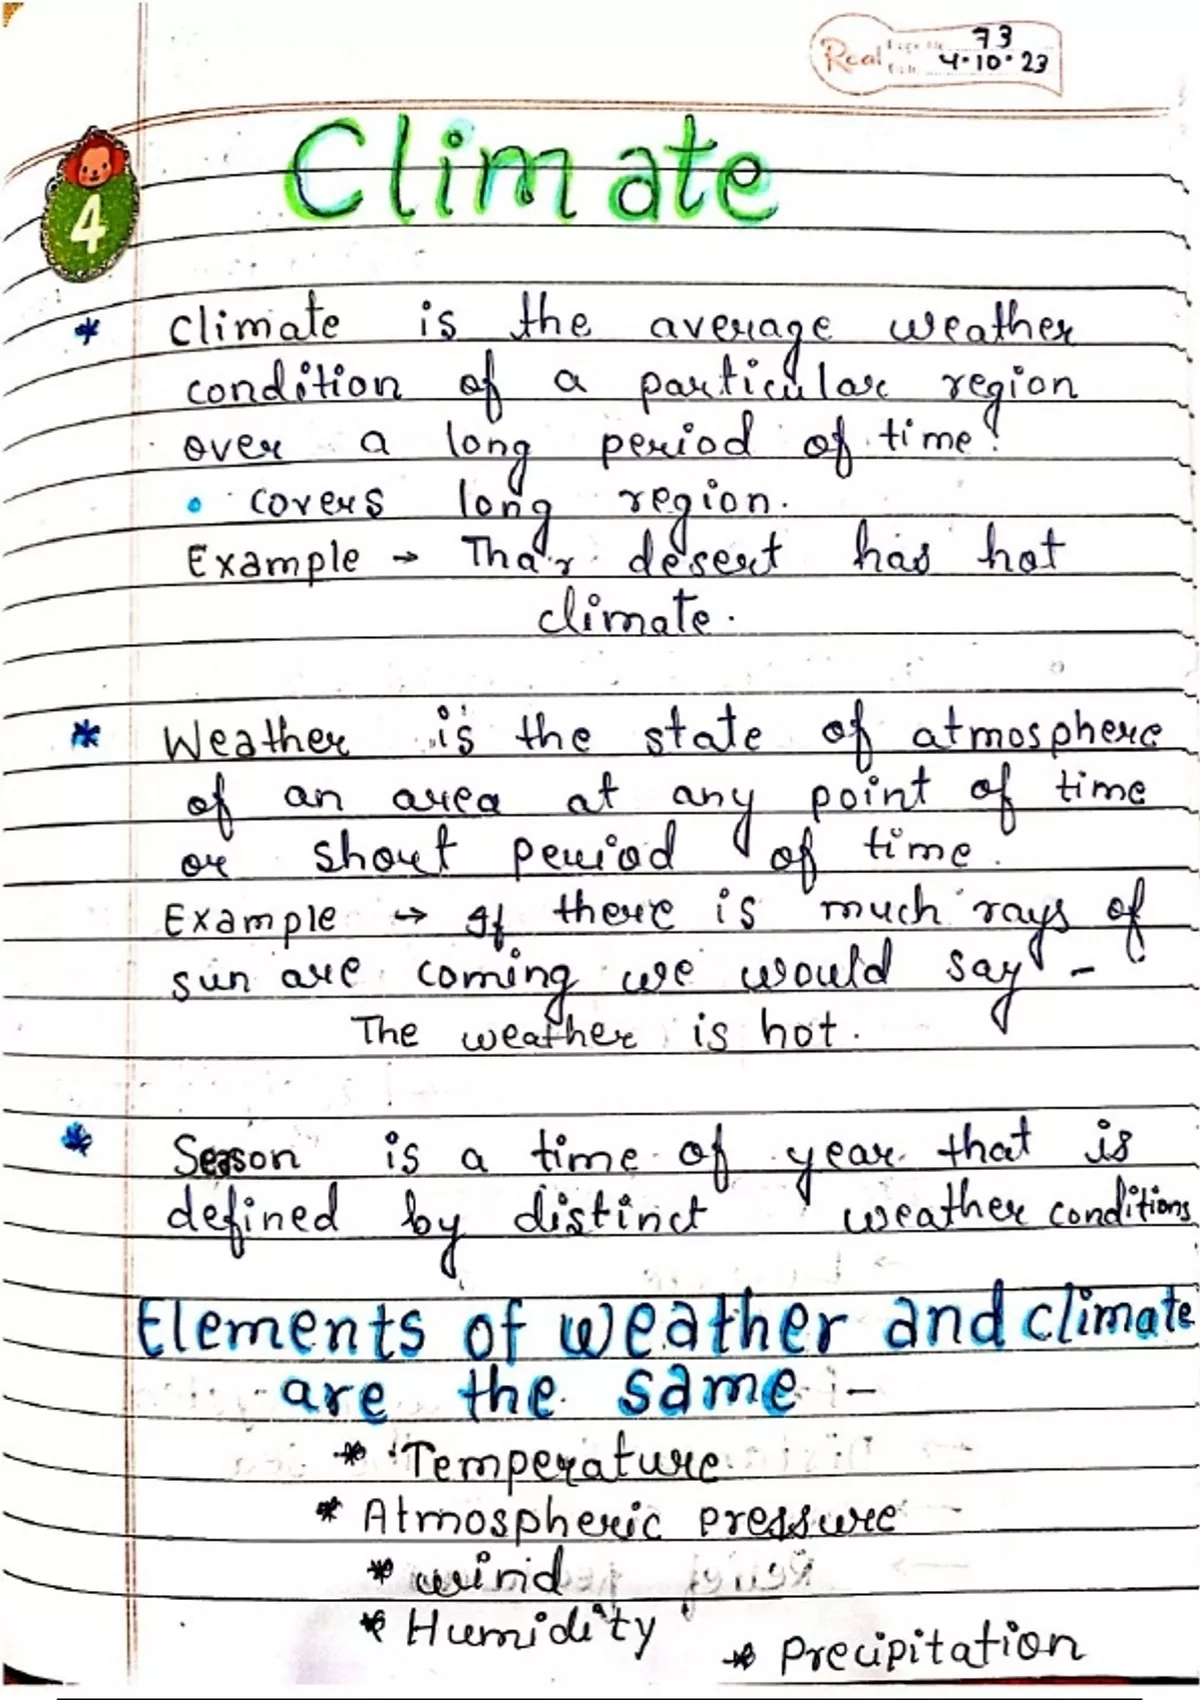 Real Page No. 73
Date 4.10.23
4
Climate
* Climate is the average weather
condition of a particular region
over a long period of time.
• covers long region.
Example → Thar desert has hot
climate.
* Weather is the state of atmosphere
of an area at any point of time
or short period of time.
Example → If there is much rays of
sun are coming we would say -
The weather is hot.
* Season is a time of year that is
defined by distinct weather conditions
Elements of weather and climate
are the same -
* Temperature
* Atmospheric pressure
* wind
* Humidity
* Precipitation